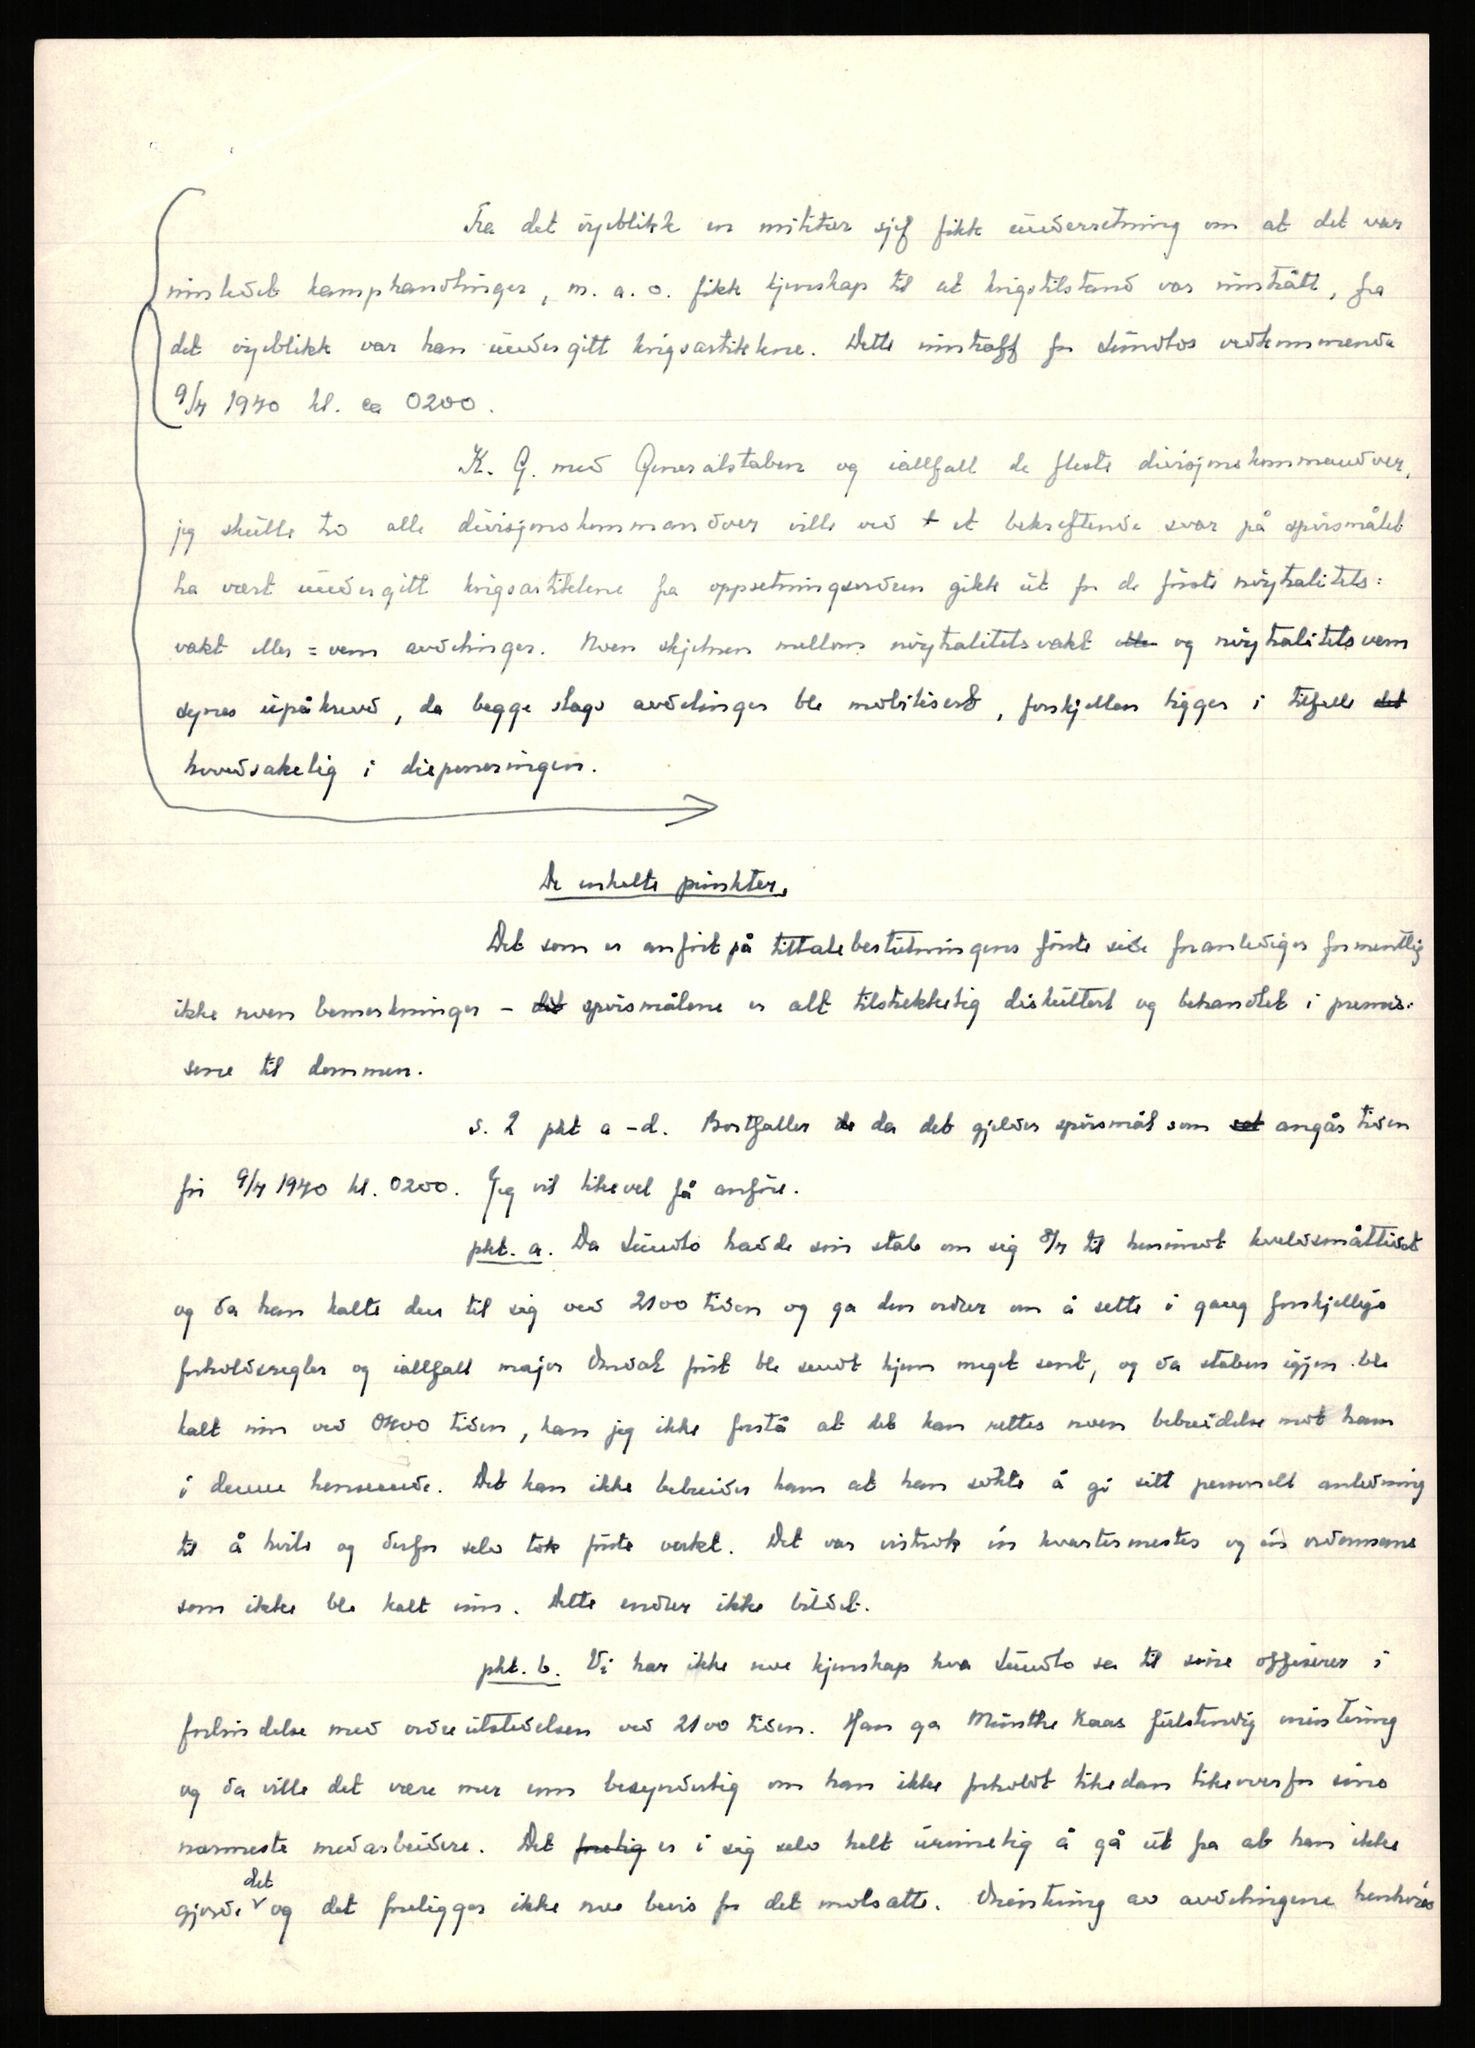 Fra det öyeblikk en militær sjef fikk underretning om at det var
innledet kamphandlinger, m. a. o. fikk kjenskap til at krigstilstand var inntrått, fra
det öyeblikk var han undergitt krigsartiklene. Dette inntraff for Sundlos vedkommende
9/4 1940 kl. ca 0200.
K. G. med Generalstaben og iallfall de fleste divisjonskommandoer,
jeg skulle tro alle divisjonskommandoer ville ved et bekreftende svar på spörsmålet
ha vært undergitt krigsartiklene fra oppsetningsordren gikk ut for de förste nöytralitets=
vakt eller =vern avdelinger. Noen skjelnen mellom nöytralitetsvakt eller og nöytralitetsvern
synes upåkrevd, da begge slags avdelinger ble mobilisert, forskjellen ligger i tilfelle det
hovedsakelig i disponeringen.
De enkelte punkter.
Det som er anfört på tiltalebeslutningens förste side foranlediger formentlig
ikke noen bemerkninger - det spörsmålene er alt tilstrekkelig diskutert og behandlet i premis=
sene til dommen.
s. 2 pkt a-d. Bortfaller de da det gjelder spörsmål som angår tiden
för 9/4 1940 kl. 0200. Jeg vil likevel få anföre.
pkt. a. Da Sundlo hadde sin stab om sig 8/4 til henimot kveldsmåltidet
og da han kalte den til sig ved 2100 tiden og ga den ordrer om å sette i gang forskjellige
forholdsregler og iallfall major Omdal först ble sendt hjem meget sent, og da staben igjen ble
kalt inn ved 0400 tiden, kan jeg ikke forstå at det kan rettes noen bebreidelse mot ham
i denne henseende. Det kan ikke bebreides ham at han sökte å gi sitt personell anledning
til å hvile og derfor selv tok förste vakt. Det var vistnok én kvartermester og én ordonnans
som ikke ble kalt inn. Dette endrer ikke bildet.
pkt. b. Vi har ikke noe kjenskap hva Sundlo sa til sine offiserer i
forbindelse med ordreutstedelsen ved 2100 tiden. Han ga Munthe Kaas fullstendig orientering
og da ville det være mer enn besynderlig om han ikke forholdt likedan likeoverfor sine
nærmeste medarbeidere. Det er i sig selv helt urimelig å gå ut fra at han ikke
gjorde det og det foreligger ikke noe bevis for det motsatte. Orientering av avdelingene henhörer